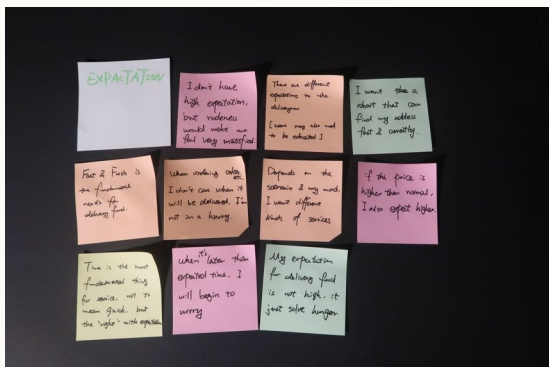 EXPACTATION
I don't have
high expeitation,
but rudeness
would make me
feel very unsatisfied.
There are different
expeitations to the
delivery
to be exhausted ]
I want a
robot that can
find my address
fast & correctly.
Fast & Fresh is
the fundamental
needs for
delivery food.
When ordering
I don't care when it
will be delivered. I'm
not in a hurry.
Depends on the
scenario & my mood.
I want different
kinds of services
if the price is
higher than normal,
I also expect higher.
Time is the most
fundamental thing
for service. not to
mean quick. but
the "right" with expeitation
When it's later than
expeited time, I
will begin to
worry
My expeitation
for delivery food
is not high. it
just solve hunger